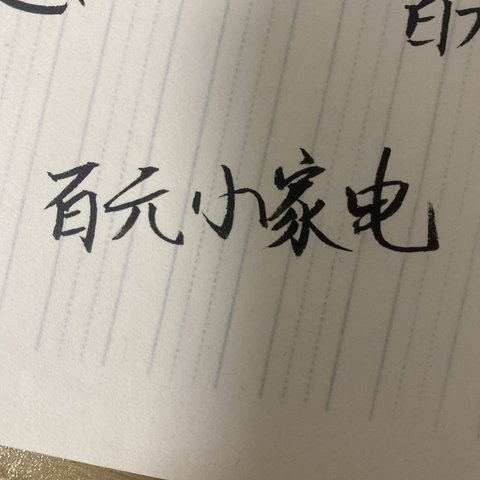 百元小家电